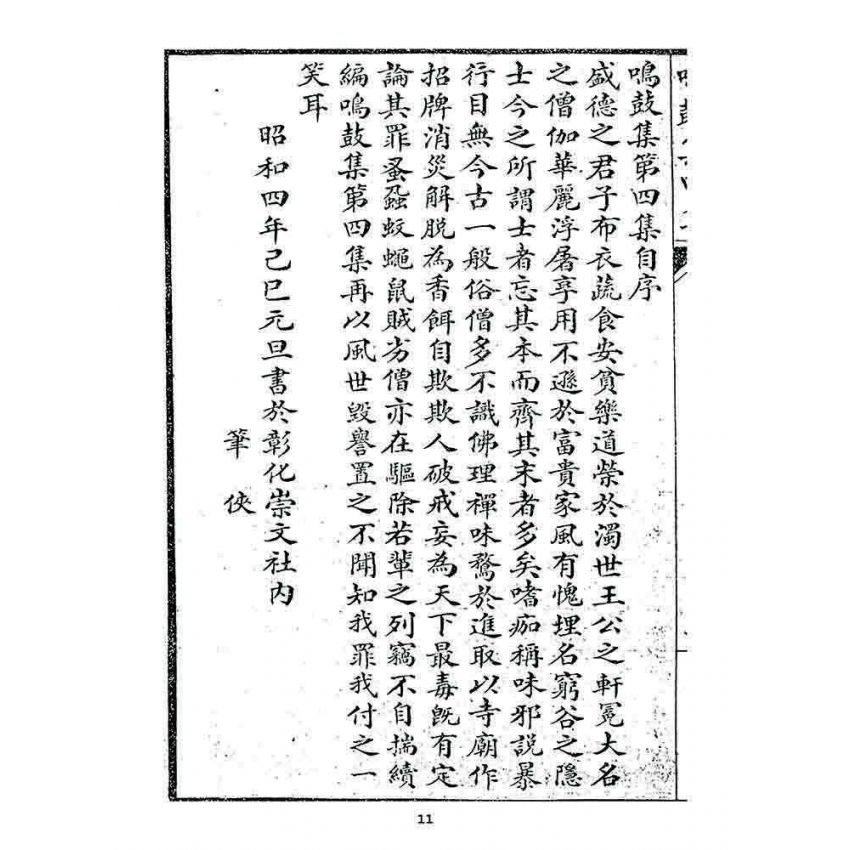 鳴鼓集第四集自序
盛德之君子布衣蔬食安貧樂道榮於濁世王公之軒冕大名
之僧伽華麗浮屠享用不遜於富貴家風有愧埋名窮谷之隱
士今之所謂士者忘其本而齊其末者多矣嗜痂稱味邪說暴
行目無今古一般俗僧多不識佛理禪味騖於進取以寺廟作
招牌消災解脫為香餌自欺欺人破戒妄為天下最毒既有定
論其罪蚤蝨蚊蠅鼠賊劣僧亦在驅除若輩之列竊不自揣續
編鳴鼓集第四集再以風世毀譽置之不聞知我罪我付之一
笑耳
昭和四年己巳元旦書於彰化崇文社內
筆俠
11